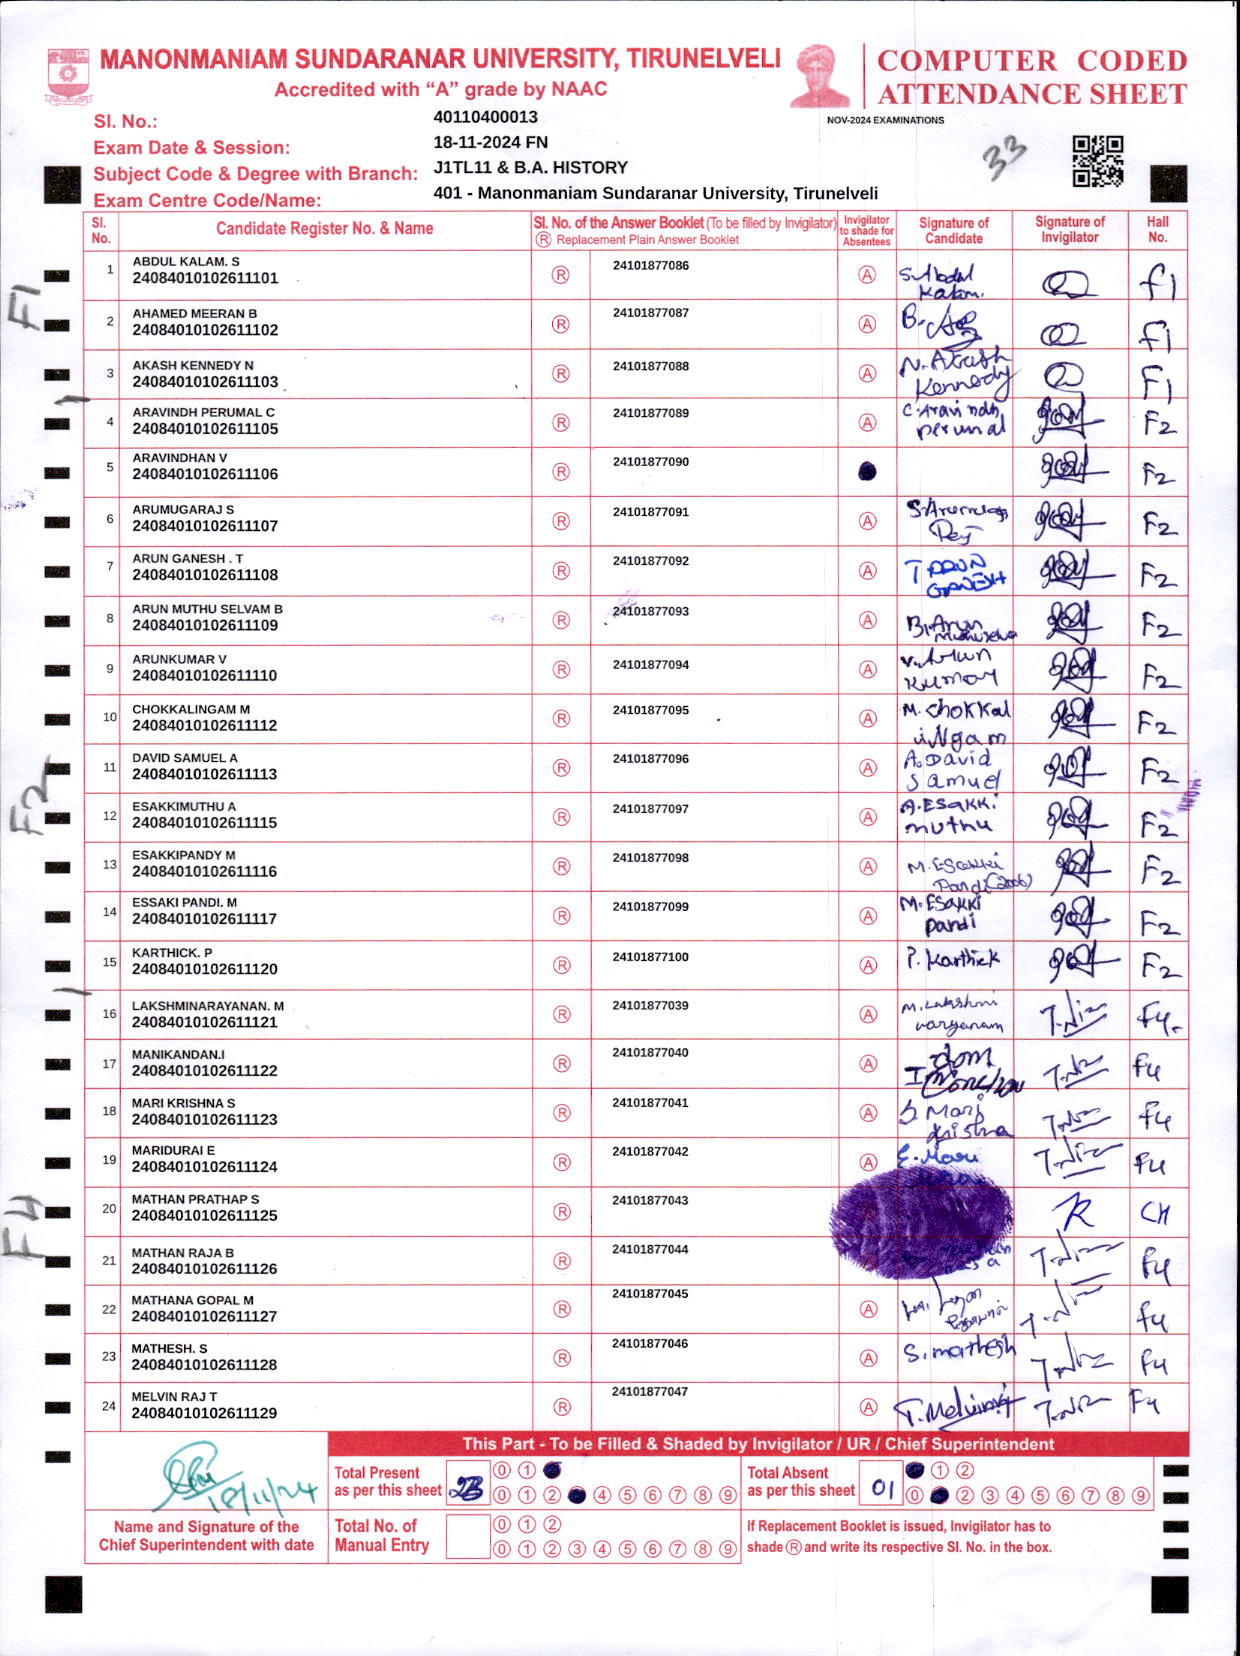 MANONMANIAM SUNDARANAR UNIVERSITY, TIRUNELVELI
Accredited with “A” grade by NAAC
COMPUTER CODED
ATTENDANCE SHEET
NOV-2024 EXAMINATIONS
33
Sl. No.: 40110400013
Exam Date & Session: 18-11-2024 FN
Subject Code & Degree with Branch: J1TL11 & B.A. HISTORY
Exam Centre Code/Name: 401 - Manonmaniam Sundaranar University, Tirunelveli
Sl. No. Candidate Register No. & Name Sl. No. of the Answer Booklet (To be filled by Invigilator) Ⓡ Replacement Plain Answer Booklet Invigilator to shade for Absentees Signature of Candidate Signature of Invigilator Hall No.
F1
1 ABDUL KALAM. S 24101877086 S.Abdul
24084010102611101 Ⓡ Ⓐ Kalam. F1
2 AHAMED MEERAN B 24101877087
24084010102611102 Ⓡ Ⓐ B. F1
3 AKASH KENNEDY N 24101877088 N. Akash
24084010102611103 Ⓡ Ⓐ Kennedy F1
4 ARAVINDH PERUMAL C 24101877089 C. Aravindh
24084010102611105 Ⓡ Ⓐ perumal F2
5 ARAVINDHAN V 24101877090
24084010102611106 Ⓡ F2
6 ARUMUGARAJ S 24101877091
24084010102611107 Ⓡ Ⓐ F2
7 ARUN GANESH . T 24101877092 T ARUN
24084010102611108 Ⓡ Ⓐ GANESH F2
8 ARUN MUTHU SELVAM B 24101877093
24084010102611109 Ⓡ Ⓐ B. Arun F2
9 ARUNKUMAR V 24101877094 V. Arun
24084010102611110 Ⓡ Ⓐ Kumar F2
10 CHOKKALINGAM M 24101877095 M. Chokkal
24084010102611112 Ⓡ Ⓐ iNgam F2
F2
11 DAVID SAMUEL A 24101877096 A. David
24084010102611113 Ⓡ Ⓐ Samuel F2
12 ESAKKIMUTHU A 24101877097 A. ESakki
24084010102611115 Ⓡ Ⓐ muthu F2
13 ESAKKIPANDY M 24101877098 M. ESakki
24084010102611116 Ⓡ Ⓐ Pandi(2006) F2
14 ESSAKI PANDI. M 24101877099 M. ESakki
24084010102611117 Ⓡ Ⓐ pandi F2
15 KARTHICK. P 24101877100
24084010102611120 Ⓡ Ⓐ P. Karthick F2
16 LAKSHMINARAYANAN. M 24101877039 M. Lakshmi
24084010102611121 Ⓡ Ⓐ F4.
17 MANIKANDAN.I 24101877040
24084010102611122 Ⓡ Ⓐ F4
18 MARI KRISHNA S 24101877041 S Mari
24084010102611123 Ⓡ Ⓐ krishna F4
19 MARIDURAI E 24101877042 E. Mari
24084010102611124 Ⓡ Ⓐ F4
F4
20 MATHAN PRATHAP S 24101877043
24084010102611125 Ⓡ CH
21 MATHAN RAJA B 24101877044
24084010102611126 Ⓡ F4
22 MATHANA GOPAL M 24101877045
24084010102611127 Ⓡ Ⓐ F4
23 MATHESH. S 24101877046 S. mathesh
24084010102611128 Ⓡ Ⓐ F4
24 MELVIN RAJ T 24101877047
24084010102611129 Ⓡ Ⓐ T. Melvinraj F4
This Part - To be Filled & Shaded by Invigilator / UR / Chief Superintendent
18/11/24
Name and Signature of the
Chief Superintendent with date
Total Present 0 1
as per this sheet 23 0 1 2 4 5 6 7 8 9
Total Absent 1 2
as per this sheet 01 0 2 3 4 5 6 7 8 9
Total No. of 0 1 2
Manual Entry 0 1 2 3 4 5 6 7 8 9
If Replacement Booklet is issued, Invigilator has to
shade Ⓡ and write its respective Sl. No. in the box.